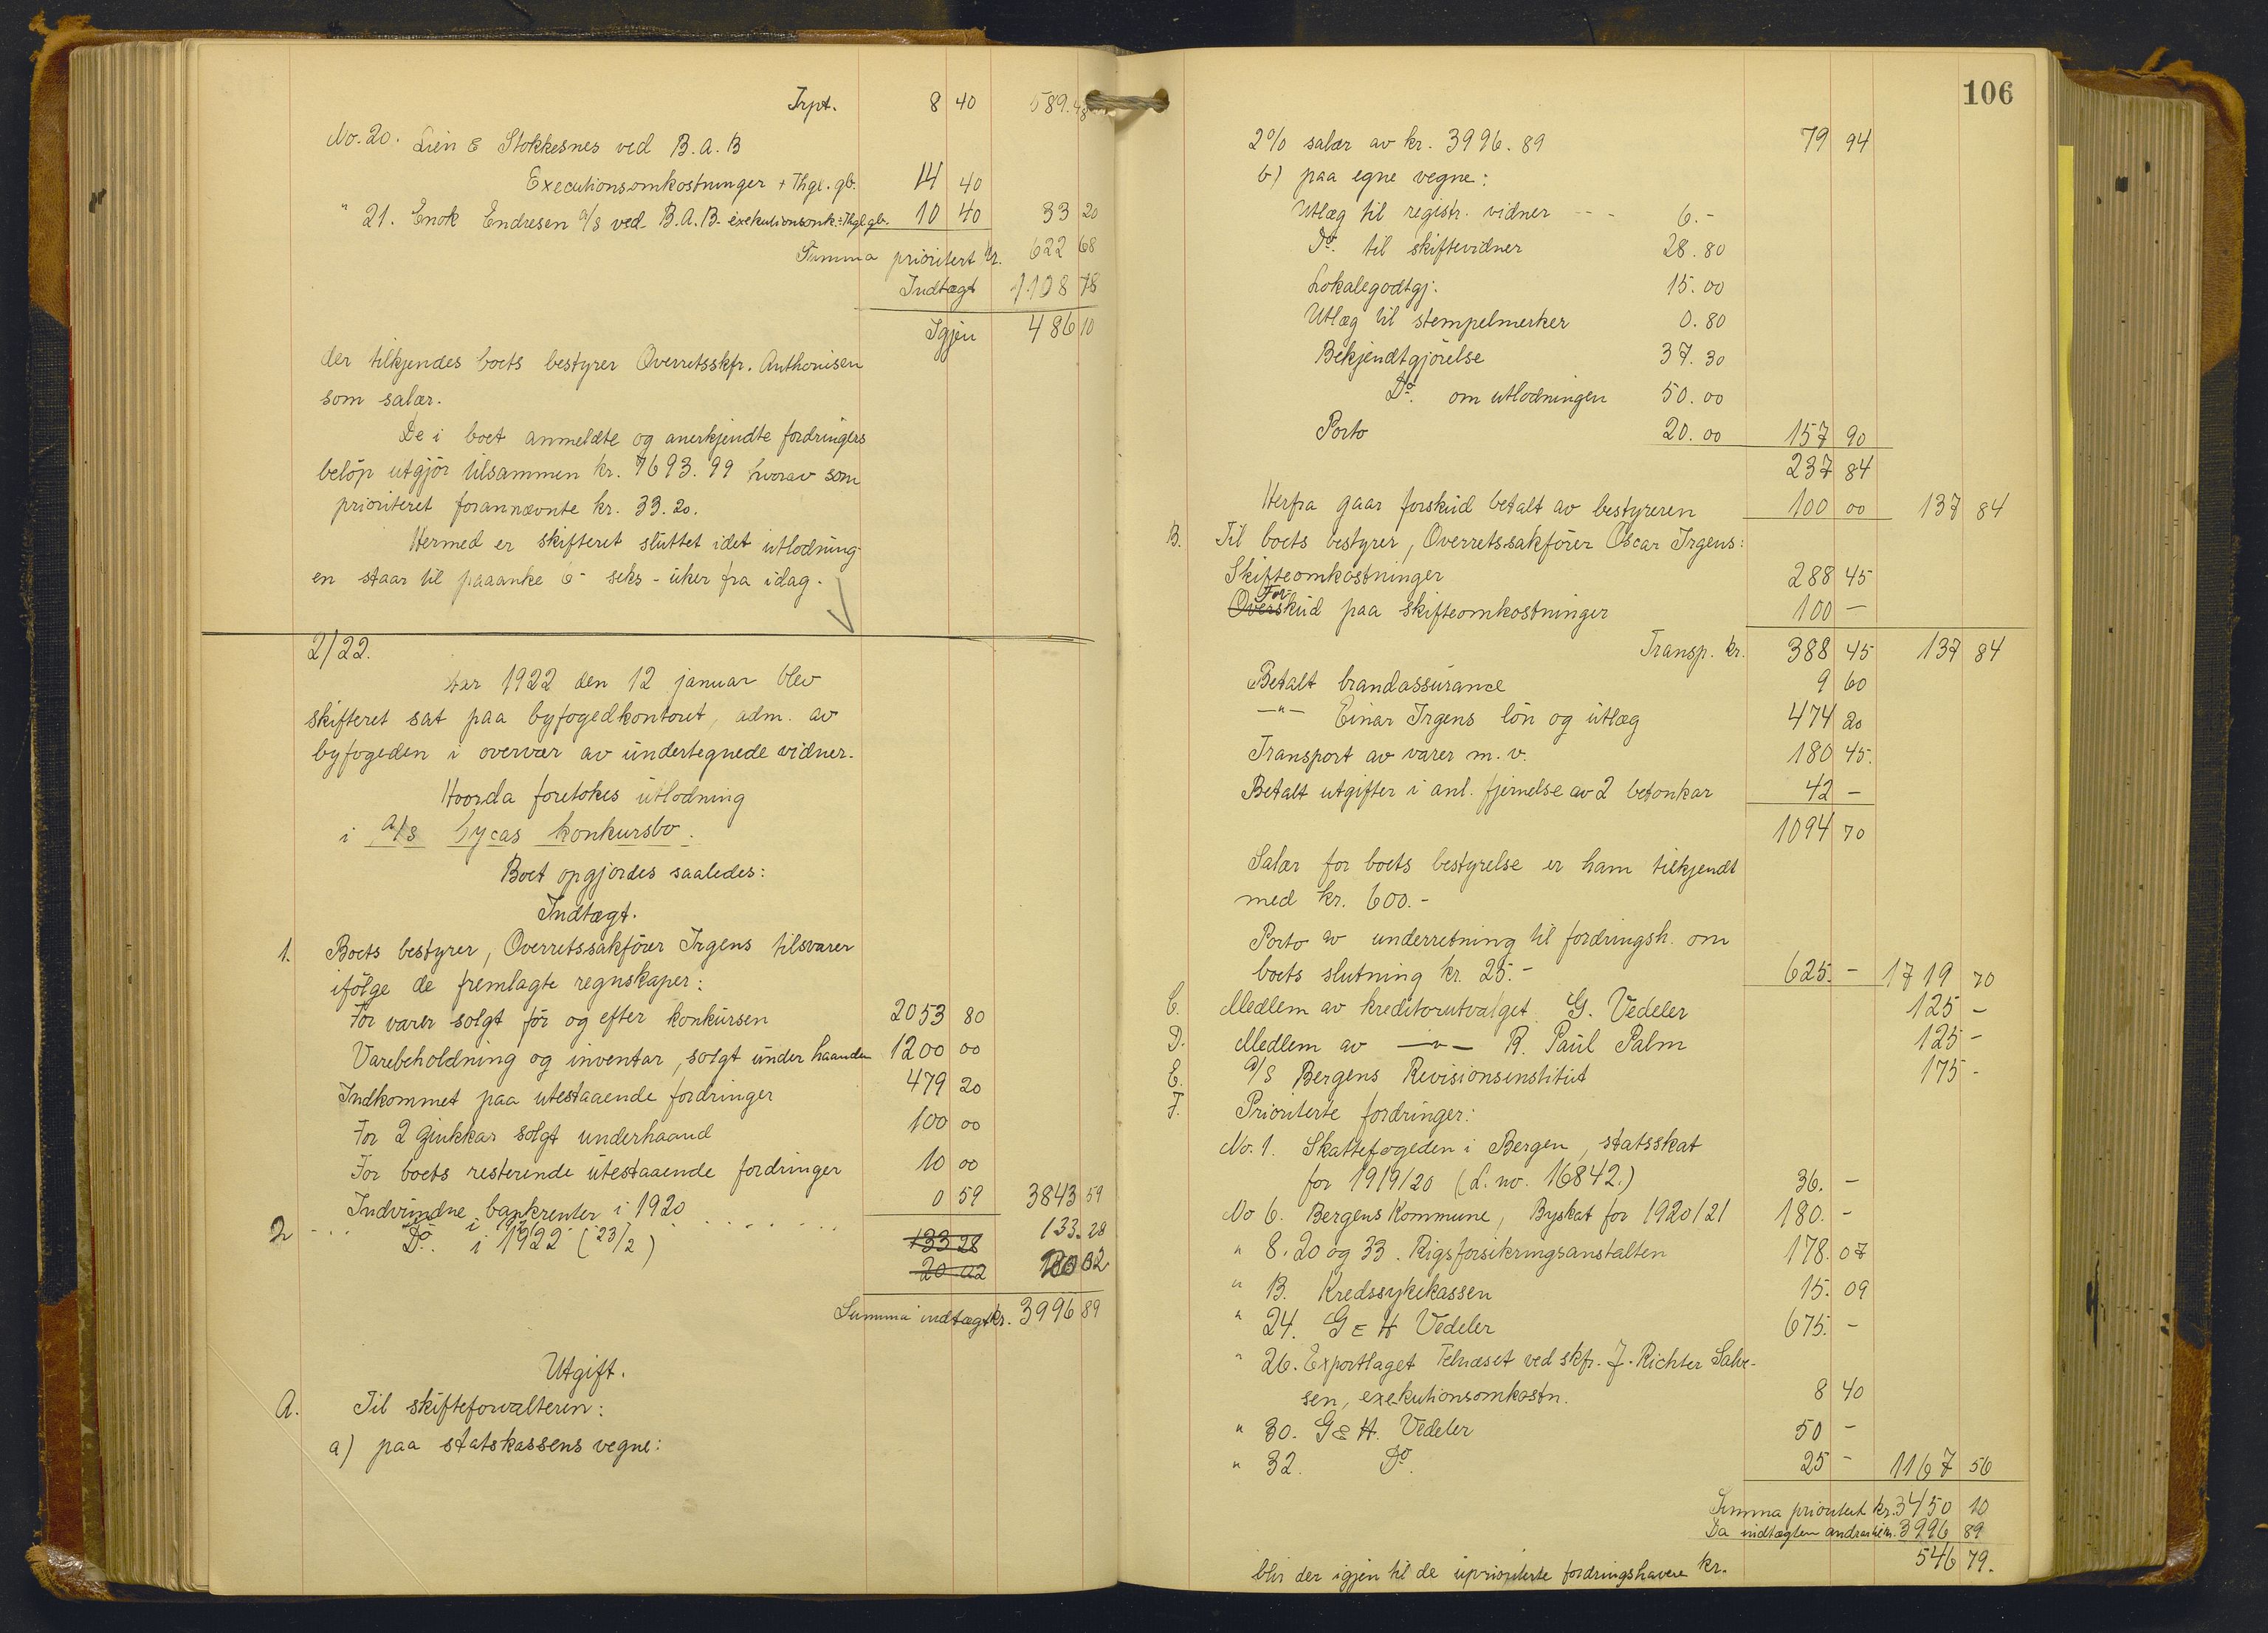 Trpt. 8 40 589.48
No. 20. Lien & Stokkesnes ved B.A.B
Executionsomkostninger + Thgl. gb. 14 40
" 21. Enok Endresen a/s ved B.A.B. exekutionsomk. + Thgl. gb. 10 40 33 20
Summa prioritert kr. 622 68
Indtægt 1108 78
Igjen 486 10
der tilkjendes boets bestyrer Overretsskfr. Anthonisen
som salær.
De i boet anmeldte og anerkjendte fordringers
beløp utgjør tilsammen kr. 7693.99 hvorav som
prioriteret forannævnte kr. 33.20.
Hermed er skifteret sluttet idet utlodning-
en staar til paaanke 6 - seks - uker fra idag.
2/22.
Aar 1922 den 12 januar blev
skifteret sat paa byfogedkontoret, adm. av
byfogeden i overvær av undertegnede vidner.
Hvorda foretokes utlodning
i a/s Lycas konkursbo.
Boet opgjordes saaledes:
Indtægt.
1. Boets bestyrer, Overretssakfører Irgens tilsvarer
ifølge de fremlagte regnskaper:
For varer solgt før og efter konkursen 2053 80
Varebeholdning og inventar, solgt under haanden 1200 00
Indkommet paa utestaaende fordringer 479 20
For 2 ginkkar solgt underhaand 100 00
For boets resterende utestaaende fordringer 10 00
Indvundne bankrenter i 1920 0 59 3843 59
2 Do. i 1921 133 28 133.28
Do. i 1922 (23/2) 20 02 02
Summa indtægt kr. 3996 89
Utgift.
A. Til skifteforvalteren:
a) paa statskassens vegne:
106
2% salær av kr. 3996.89 79 94
b) paa egne vegne:
Utlæg til registr. vidner - - - 6.-
Do. til skiftevidner 28.80
Lokalegodtgj. 15.00
Utlæg til stempelmerker 0.80
Bekjendtgjørelse 37.30
Do. om utlodningen 50.00
Porto 20.00 157 90
237 84
Herfra gaar forskud betalt av bestyreren 100 00 137 84
B. Til boets bestyrer, Overretssakfører Oscar Irgens:
Skifteomkostninger 288 45
For
Overskud paa skifteomkostninger 100 -
Transp. kr. 388 45 137 84
Betalt brandassurance 9 60
-"- Einar Irgens løn og utlæg 474 20
Transport av varer m.v. 180 45.
Betalt utgifter i anl. fjernelse av 2 betonkar 42 -
1094 70
Salær for boets bestyrelse er ham tilkjendt
med kr. 600.-
Porto av underretning til fordringsh. om
boets slutning kr. 25.- 625.- 1719 70
C. Medlem av kreditorutvalget G. Vedeler 125 -
D. Medlem av -"- R. Paul Palm 125 -
E. a/s Bergens Revisionsinstitut 175 -
F. Prioriterte fordringer:
No. 1. Skattefogeden i Bergen, statsskat
for 1919/20 (L. no. 16842.) 36. -
No 6. Bergens Kommune, Byskat for 1920/21 180. -
" 8. 20 og 33. Rigsforsikringsanstalten 178. 07
" 13. Kredssykekassen 15. 09
" 24. G & H Vedeler 675. -
" 26. Exportlaget Telnæset ved skfr. J. Richter Salve-
sen, exekutionsomkostn. 8 40
" 30. G & H. Vedeler 50 -
" 32. Do. 25 - 1167 56
Summa prioritert kr. 3450 10
Da indtægten andrar til kr. 3996 89
blir der igjen til de uprioriterte fordringshavere kr. 546 79.